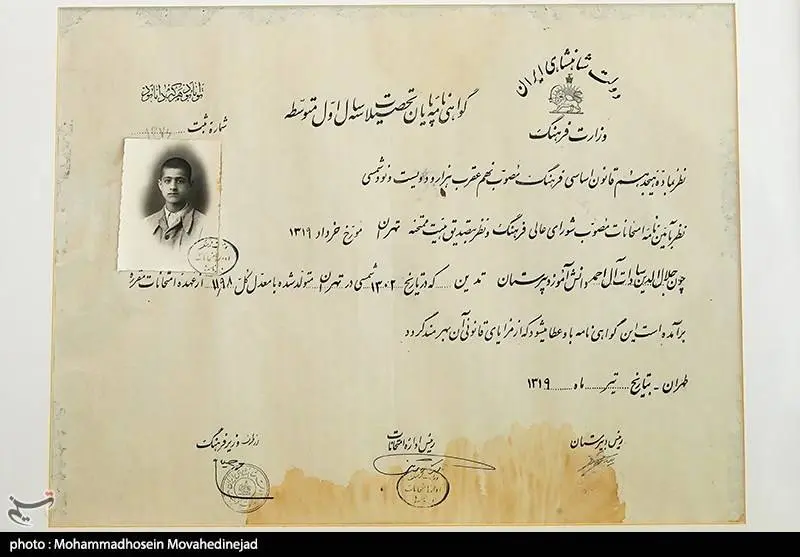 دولت شاهنشاهی ایران
وزارت فرهنگ
گواهی نامه پایان تحصیلات سه ساله اول متوسطه
توانا بود هر که دانا بود
شماره ثبت
نظر بماده هیجدهم قانون اساسی فرهنگ مصوب نهم عقرب هزار و دویست و نود شمسی
نظر بآئین نامه امتحانات مصوب شورای عالی فرهنگ و نظر بتصدیق هیئت ممتحنه تهران مورخ خرداد ۱۳۱۹
چون جلال الدین سادات آل احمد دانش آموز دبیرستان تدین که در تاریخ ۱۳۰۲ شمسی در تهران متولد شده با معدل کل ۱۱/۹۸ از عهده امتحانات مقرره
برآمده است این گواهی نامه باو عطا میشود که از مزایای قانونی آن بهره مند گردد
طهران - بتاریخ تیر ماه ۱۳۱۹
رئیس دبیرستان
رئیس اداره امتحانات
از طرف وزیر فرهنگ
تسنیم
photo : Mohammadhosein Movahedinejad